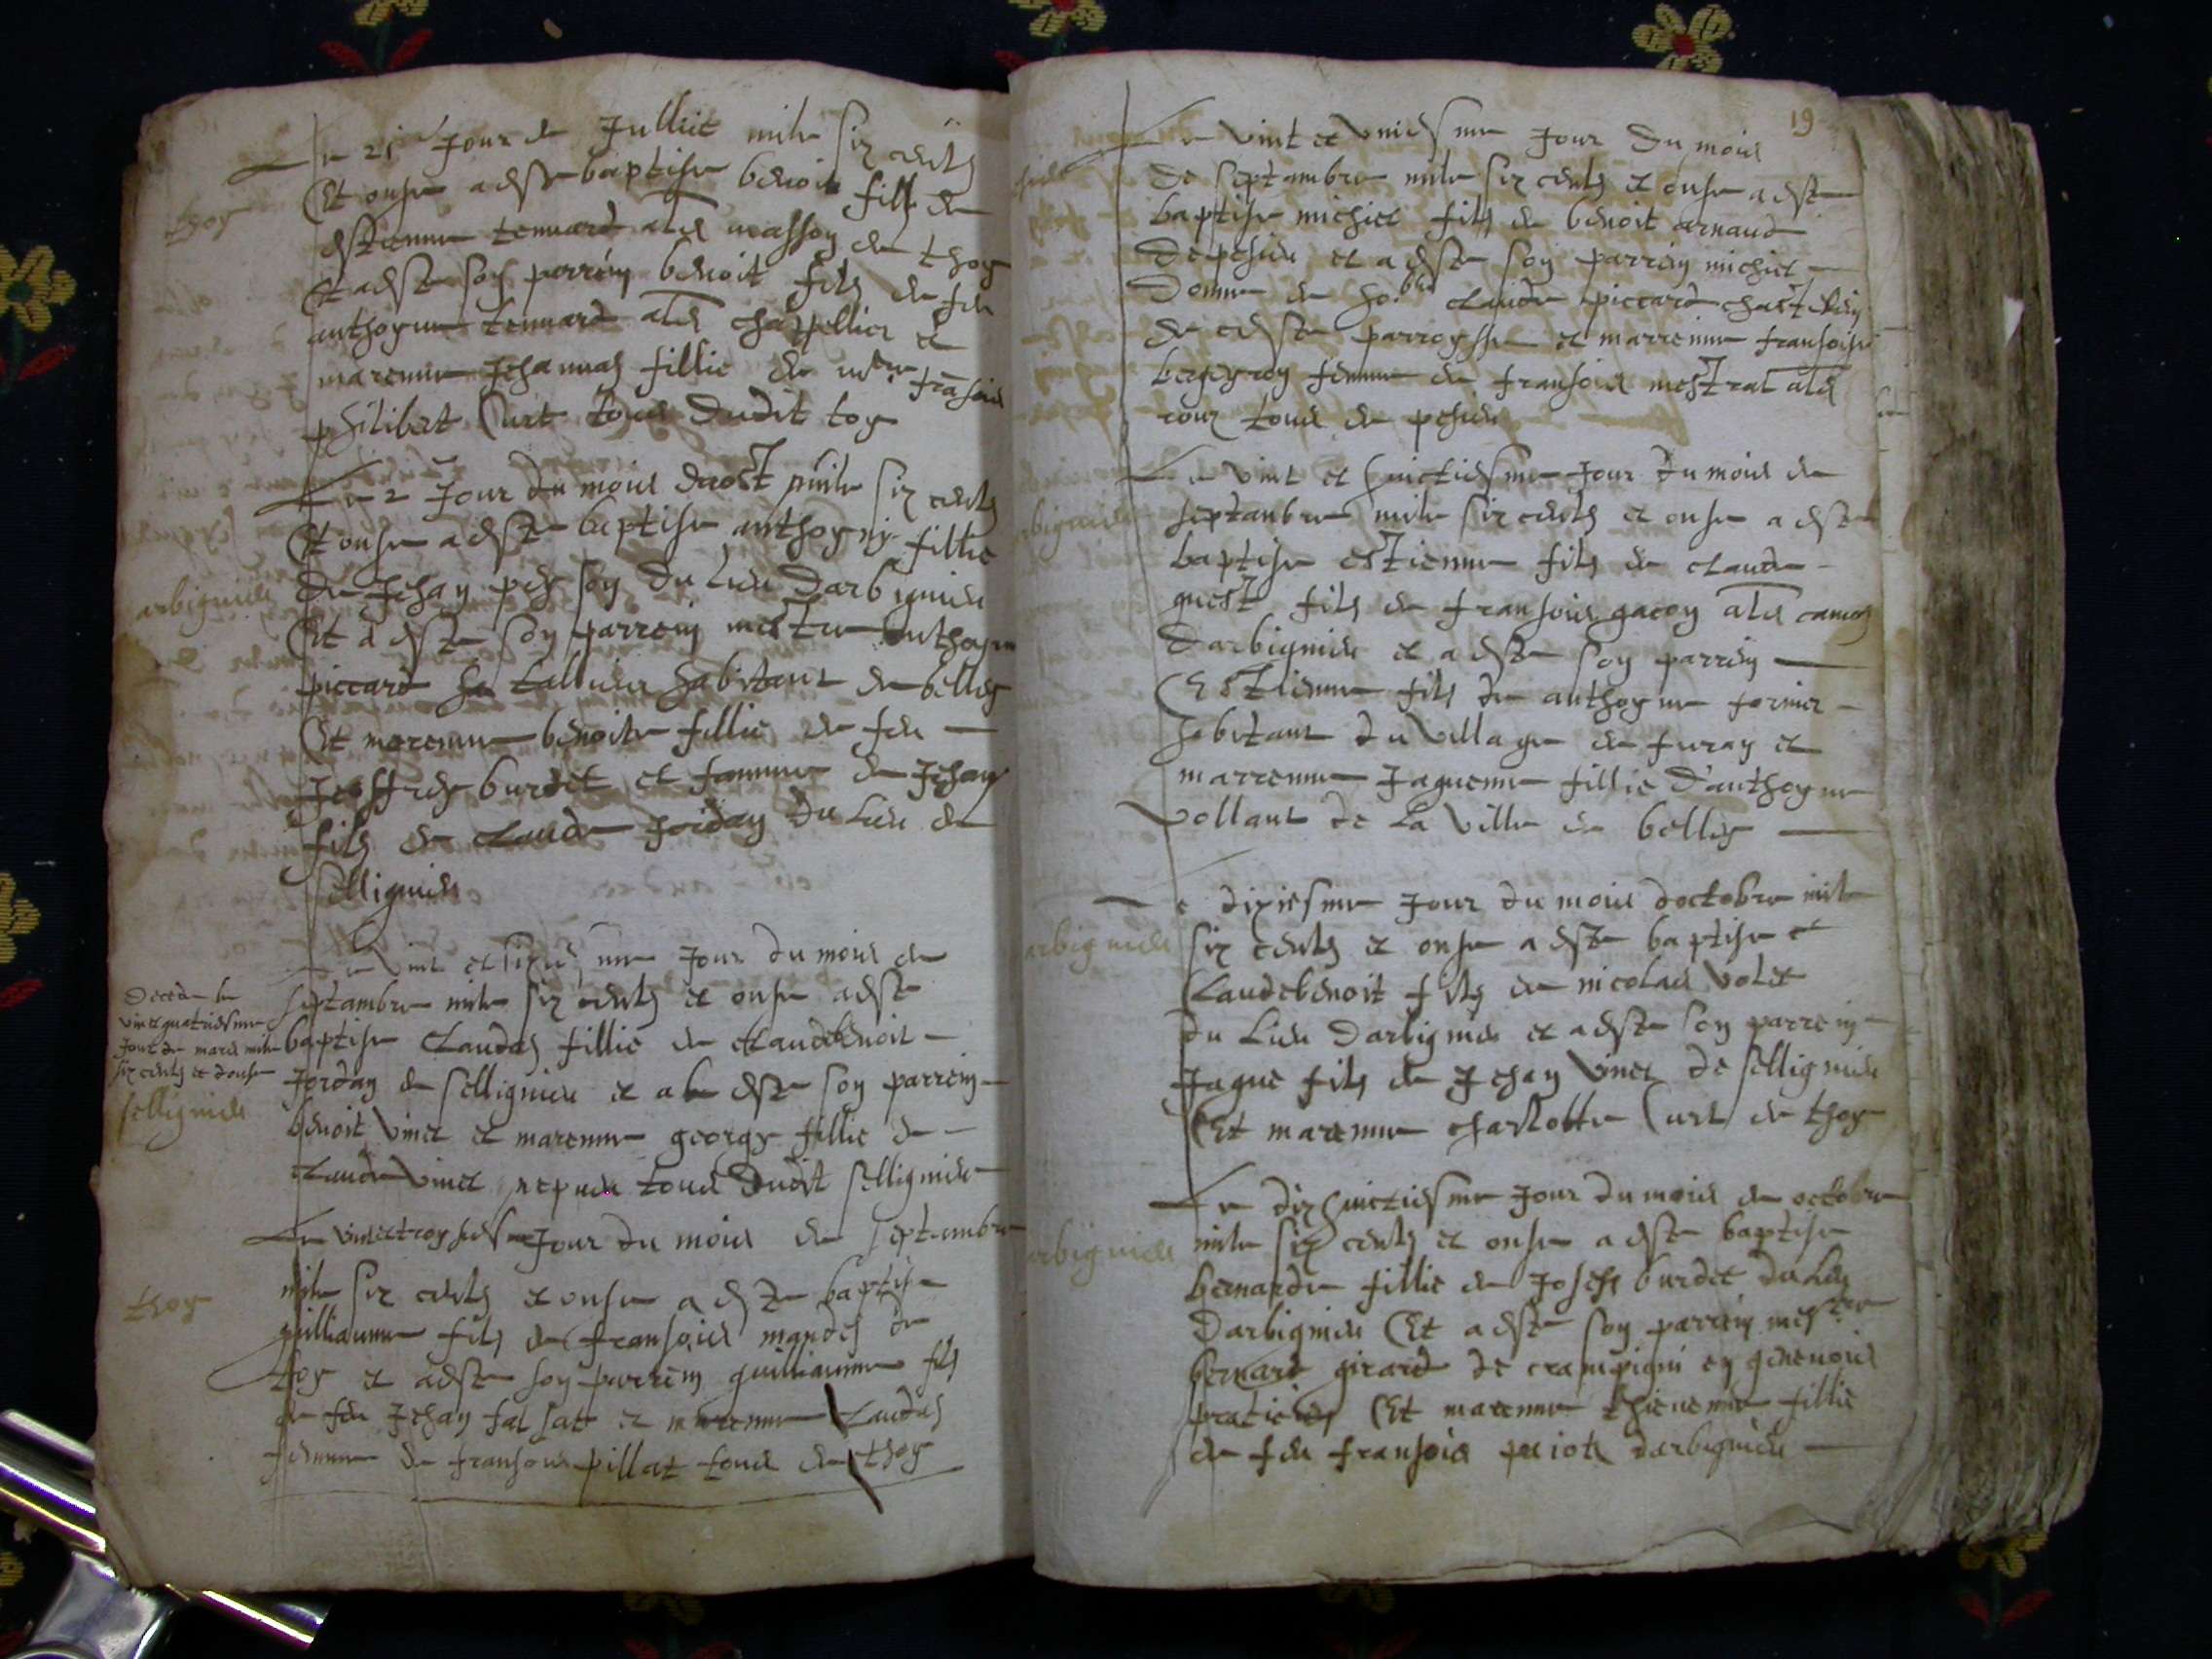 Le 21 Jour de Jullict mile six cents
thoy
Et onse a este baptise benoit fills de
estienne tennard alias masson de thoy
Et a este son perrein benoit fils de feu
anthoyne tennard alias chappellier et
marenne Jehannaz fillie de fransois
philibert Curt tous dudit toy
Le 2 Jour du mois daost mile six cents
Et onse a este baptise anthoyny fillie
arbignieu
de Jehan du Lieu Darbignieu
Et a este son parrein mestre anthoyne
piccard habitant de belley
Et marenne benoite fillie de feu
Jeoffrey burdet et famme de Jehan
fils de Claude Jordan du Lieu de
sellignieu
Le vint et sixiesme Jour du mois de
Decede le
vint quatriesme
Jour de mars mile
six cents et douse
sellignieu
septambre mile six cents et onse a este
baptise Claudaz fillie de Claudebenoit
Jordan de sellignieu et a este son parrein
benoit vinet et marenne georgy fillie de
Claude vinet tous dudit sellignieu
Le vint et troysiesme Jour du mois de septambre
thoy
mile six cents et onse a este baptise
guilliaume fils de fransois de
toy et a este son parrein guilliaume fils
de feu Jehan et marenne Claudaz
femme de fransois pillat tous de thoy
19
Le vint et uniesme Jour du mois
de septambre mile six cents et onse a este
baptise michiel fils de benoit arnaud
de pesieu et a este son parrein michiel
Domne de Claude piccard
de ceste parroysse et marrenne fransoise
femme de fransois mestral alias
roux tous de pesieu
Le vint et huictiesme Jour du mois de
arbignieu
septambre mile six cents et onse a este
baptise estienne fils de Claude
fils de fransois gacon alias
Darbignieu et a este son parrein
Estienne fils de anthoyne fornier
habitant du village de furan et
marrenne Jaquenne fillie d'anthoyne
vollant de La ville de belley
Le dixiesme Jour du mois doctobre mile
arbignieu
six cents et onse a este baptise
Claudebenoit fils de nicolas volet
du Lieu Darbignieu et a este son parrein
Jaque fils de Jehan vinet de sellignieu
Et marenne charlotte Curt de thoy
Le dix huictiesme Jour du mois de octobre
arbignieu
mile six cents et onse a este baptise
bernarde fillie de Joseph burdet du Lieu
Darbignieu Et a este son parrein mestre
bernard girard de crampigni en genevois
praticien Et marenne thienenne fillie
de feu fransois darbignieu